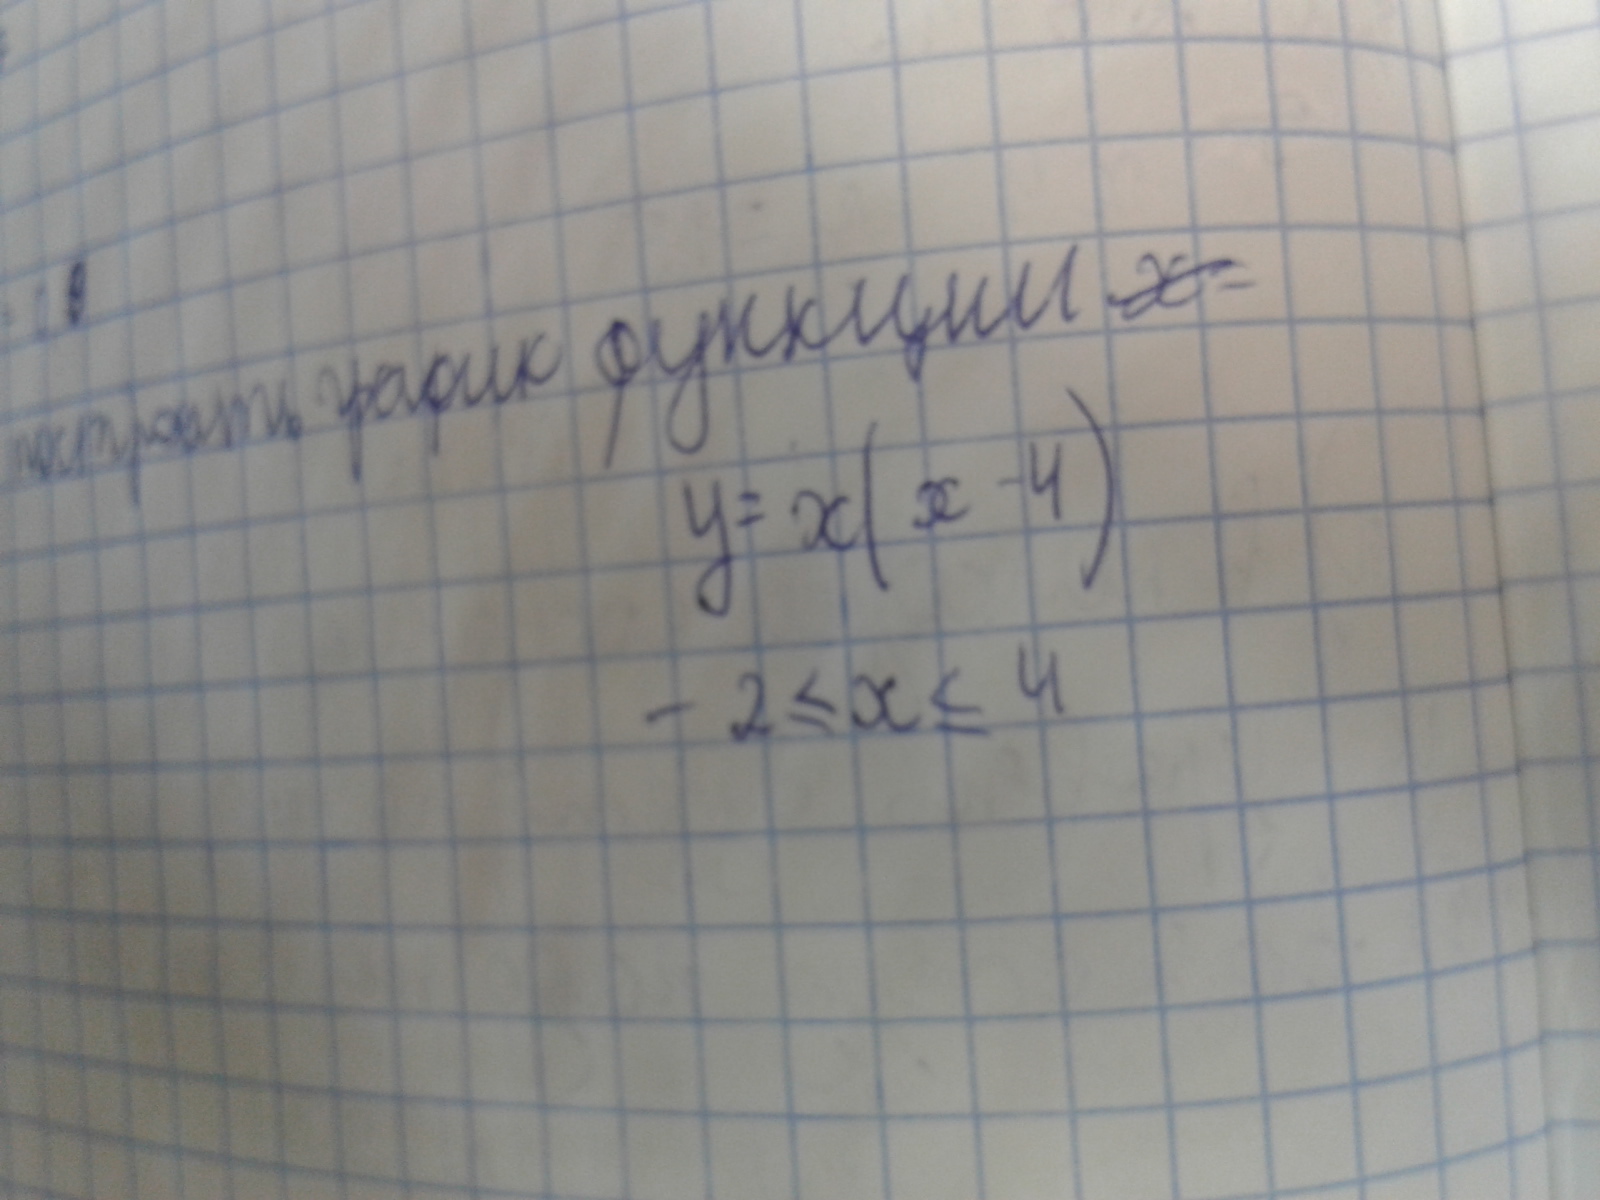 построить график функции
y = x(x - 4)
- 2 ≤ x ≤ 4